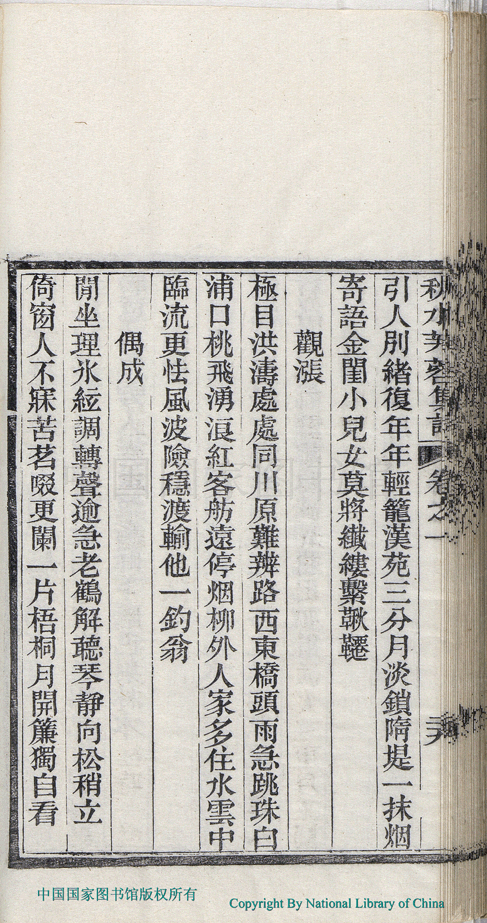 引人別緒復年年輕籠漢苑三分月淡鎖隋堤一抹烟
寄語金閨小兒女莫將纖縷繫鞦韆
觀漲
極目洪濤處處同川原難辨路西東橋頭雨急跳珠白
浦口桃飛湧浪紅客舫遠停烟柳外人家多住水雲中
臨流更怯風波險穩渡輸他一釣翁
偶成
閒坐理氷絃調轉聲逾急老鶴解聽琴靜向松稍立
倚窗人不寐苦茗啜更闌一片梧桐月開簾獨自看
中国国家图书馆版权所有
Copyright By National Library of China